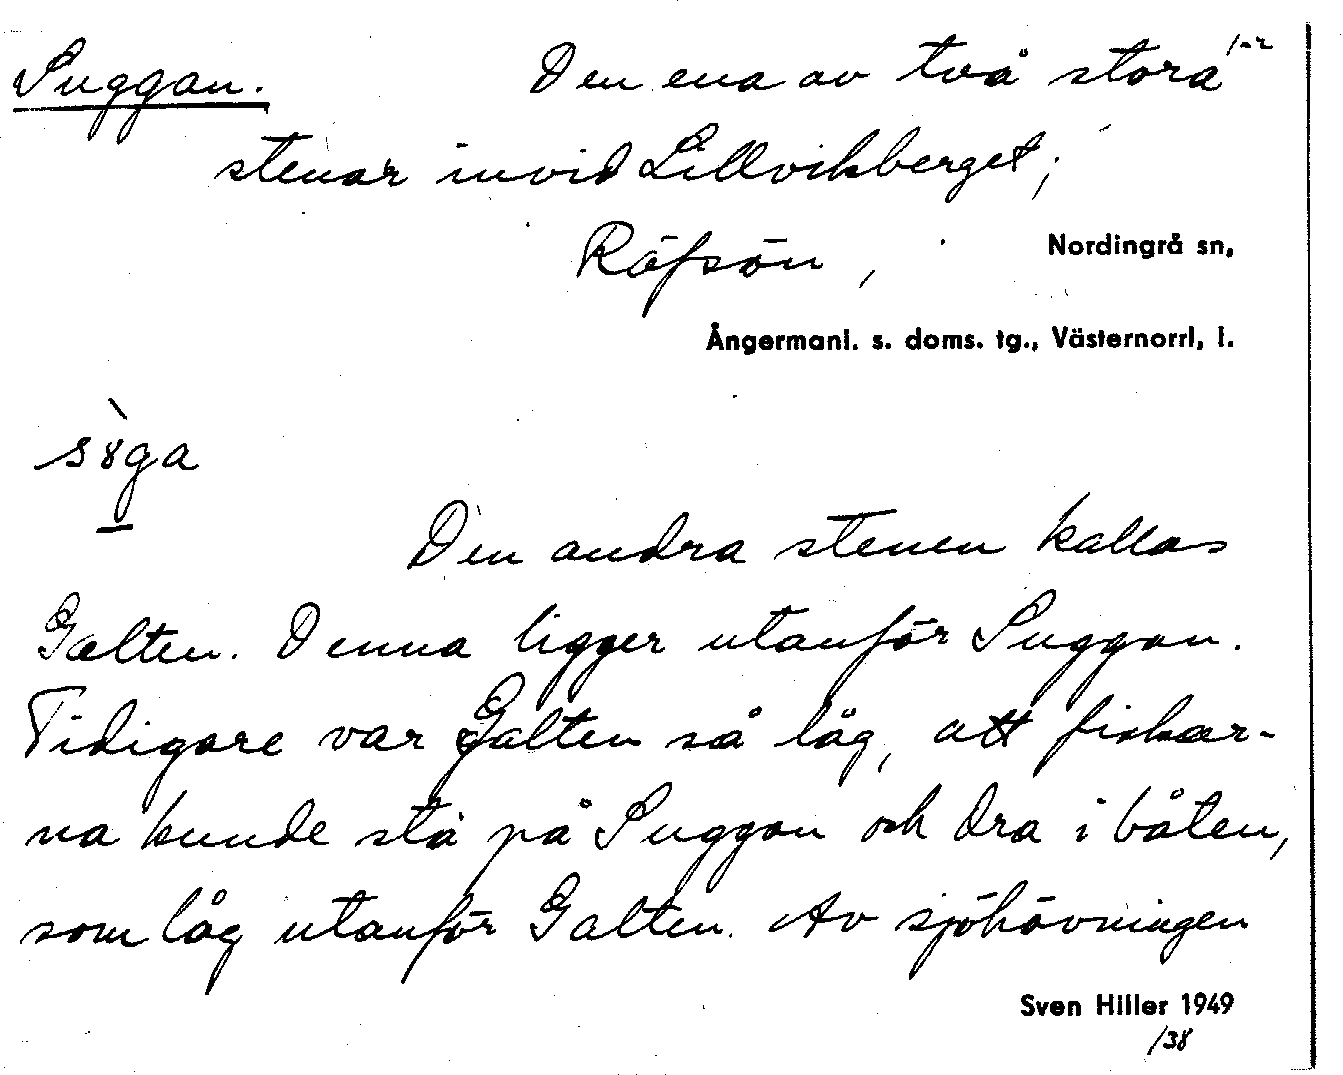 Suggan. Den ena av två stora
stenar invid Lillvikberget;
Röfsön, Nordingrå sn,
Ångermanl. s. doms. tg., Västernorrl, l.
Den andra stenen kallas
Galten. Denna ligger utanför Suggan.
Tidigare var Galten så låg, att fiskar-
na kunde stå på Suggan och dra i båten,
som låg utanför Galten. Av sjöhövningen
Sven Hiller 1949
/38